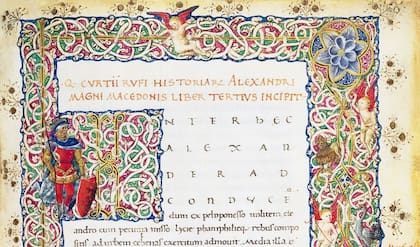 Q· CVRTII RVFI HISTORIAR ALEXANDRI
MAGNI MACEDONIS LIBER TERTIVS INCIPIT
INTERHEC
ALEXAN
DER AD
CONDVCE
dum ex peloponesso militem cle
andro cum pecunia misso lycie phamphilieq rebus compo
sitis ad urbem celenas exercitum admouit. Media illa